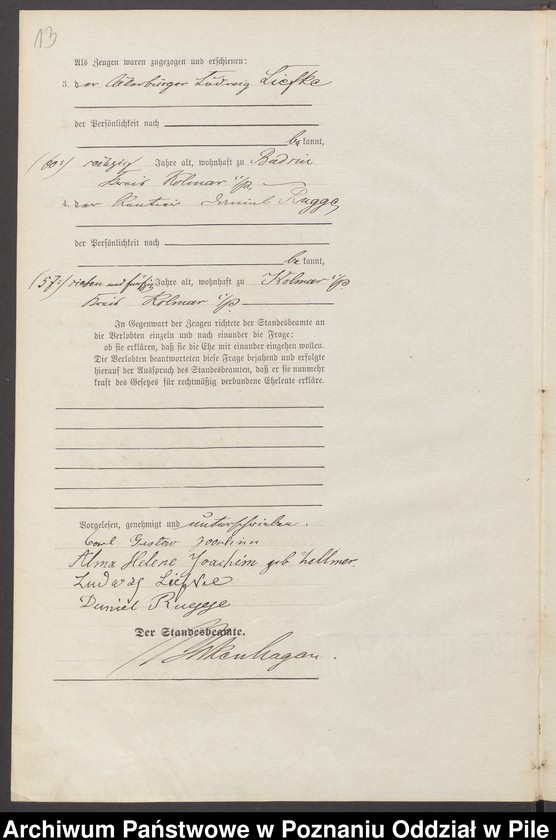 13
Als Zeugen waren zugezogen und erschienen:
3. der Ackerbürger Ludwig Liefke
der Persönlichkeit nach
bekannt,
(60:) sechzig Jahre alt, wohnhaft zu Budsin
Kreis Kolmar i/p.
4. der Rentier Daniel Rugge,
der Persönlichkeit nach
bekannt,
(57:) sieben und fünfzig Jahre alt, wohnhaft zu Kolmar i/p.
Kreis Kolmar i/p.
In Gegenwart der Zeugen richtete der Standesbeamte an
die Verlobten einzeln und nach einander die Frage:
ob sie erklären, daß sie die Ehe mit einander eingehen wollen.
Die Verlobten beantworteten diese Frage bejahend und erfolgte
hierauf der Ausspruch des Standesbeamten, daß er sie nunmehr
kraft des Gesetzes für rechtmäßig verbundene Eheleute erkläre.
Vorgelesen, genehmigt und unterschrieben.
Carl Gustav Joachim
Alma Helene Joachim geb Zellmer.
Ludwig Liefke
Daniel Rugge
Der Standesbeamte.
Archiwum Państwowe w Poznaniu Oddział w Pile